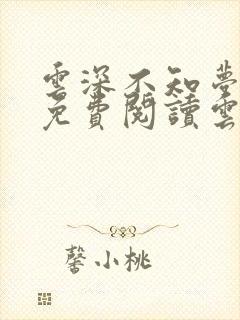 雲深不知夢
免費閱讀雲
馨小桃